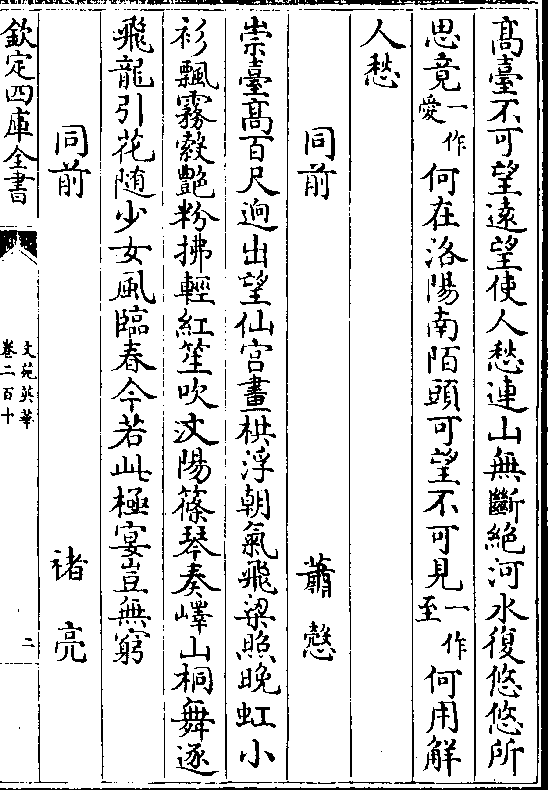 髙臺不可望逺望使人愁連山無斷絶河水復悠悠所
思竟一作愛何在洛陽南陌頭可望不可見一作至何用解
人愁
同前 蕭慤
崇臺髙百尺逈出望仙宫畫栱浮朝氣飛梁照晚虹小
衫飄霧縠艷粉拂輕紅笙吹汶陽篠琴奏嶧山桐舞逐
飛龍引花随少女風臨春今若此極宴豈無窮
同前 褚亮
欽定四庫全書
文苑英華
卷二百十
二